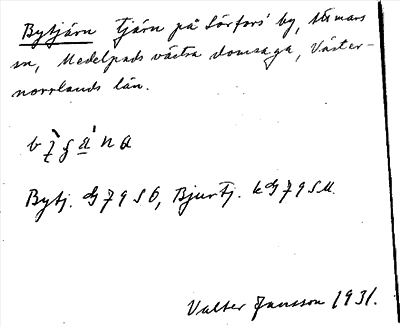 Bytjärn tjärn på Sörfors' by, Attmars
sn, Medelpads västra domsaga, Väster-
norrlands län.
Bytj. G 7956, Bjurtj.
Valter Jansson 1931.